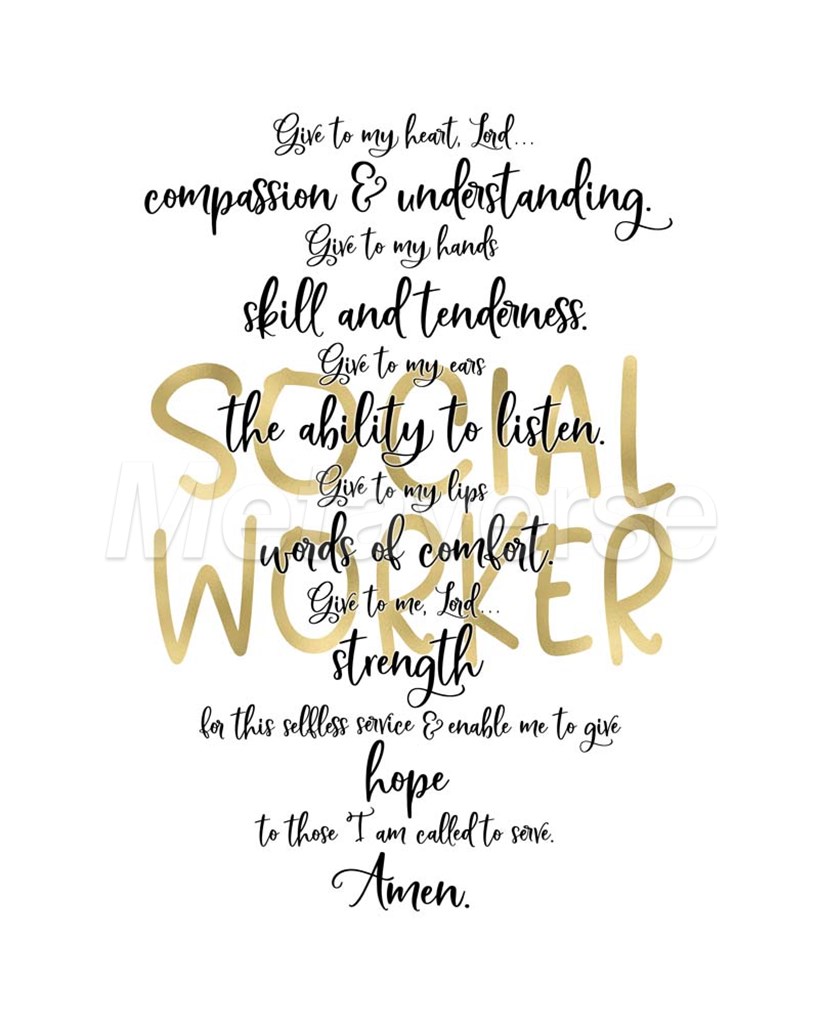 Give to my heart, Lord...
compassion & understanding.
Give to my hands
skill and tenderness.
Give to my ears
SOCIAL
the ability to listen.
Give to my lips
Metaverse
WORKER
words of comfort.
Give to me, Lord...
strength
for this selfless service & enable me to give
hope
to those I am called to serve.
Amen.